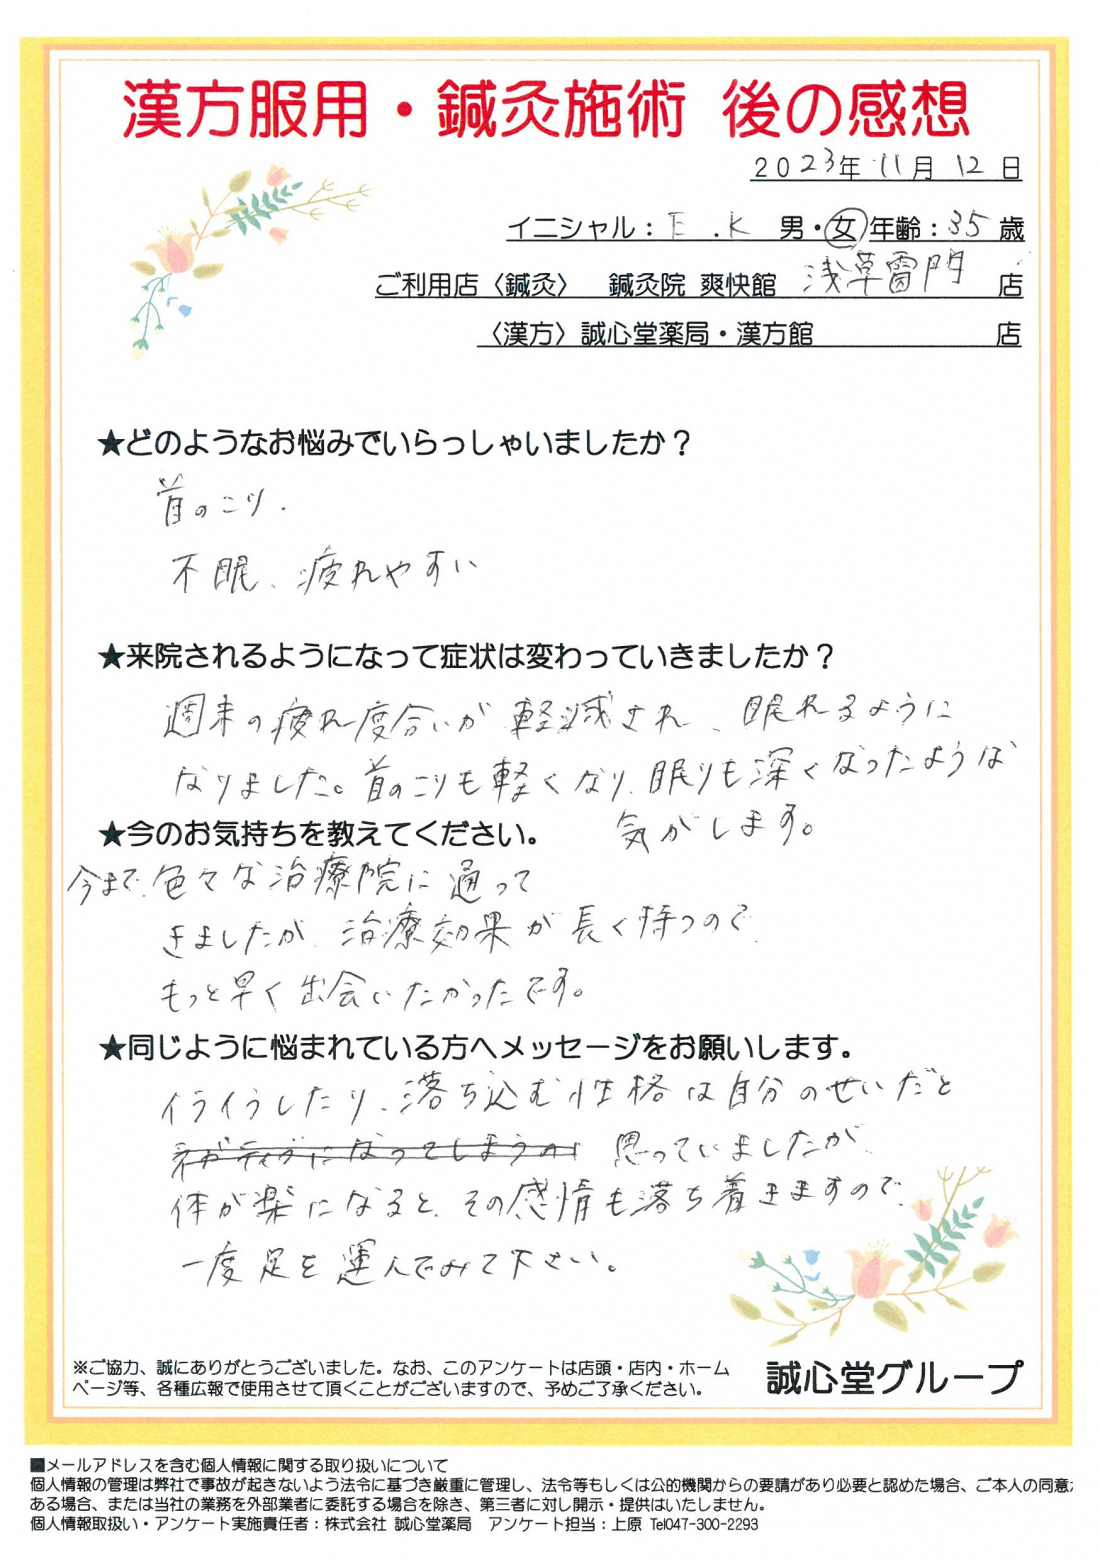 漢方服用・鍼灸施術 後の感想
2023年 11月 12日
イニシャル：E.K 男・女 年齢：35歳
ご利用店〈鍼灸〉 鍼灸院 爽快館 浅草雷門 店
〈漢方〉誠心堂薬局・漢方館 店
★どのようなお悩みでいらっしゃいましたか？
首のこり.
不眠、疲れやすい
★来院されるようになって症状は変わっていきましたか？
週末の疲れ度合いが軽減され、眠れるように
なりました。首のこりも軽くなり、眠りも深くなったような
気がします。
★今のお気持ちを教えてください。
今まで、色々な治療院に通って
きましたが、治療効果が長く持つので、
もっと早く出会いたかったです。
★同じように悩まれている方へメッセージをお願いします。
イライラしたり、落ち込む性格は自分のせいだと
ネガティヴになってしまうが 思っていましたが、
体が楽になると、その感情も落ち着きますので、
一度足を運んでみて下さい。
※ご協力、誠にありがとうございました。なお、このアンケートは店頭・店内・ホーム
ページ等、各種広報で使用させて頂くことがございますので、予めご了承ください。
誠心堂グループ
■メールアドレスを含む個人情報に関する取り扱いについて
個人情報の管理は弊社で事故が起きないよう法令に基づき厳重に管理し、法令等もしくは公的機関からの要請があり必要と認めた場合、ご本人の同意が
ある場合、または当社の業務を外部業者に委託する場合を除き、第三者に対し開示・提供はいたしません。
個人情報取扱い・アンケート実施責任者：株式会社 誠心堂薬局 アンケート担当：上原 Tel047-300-2293